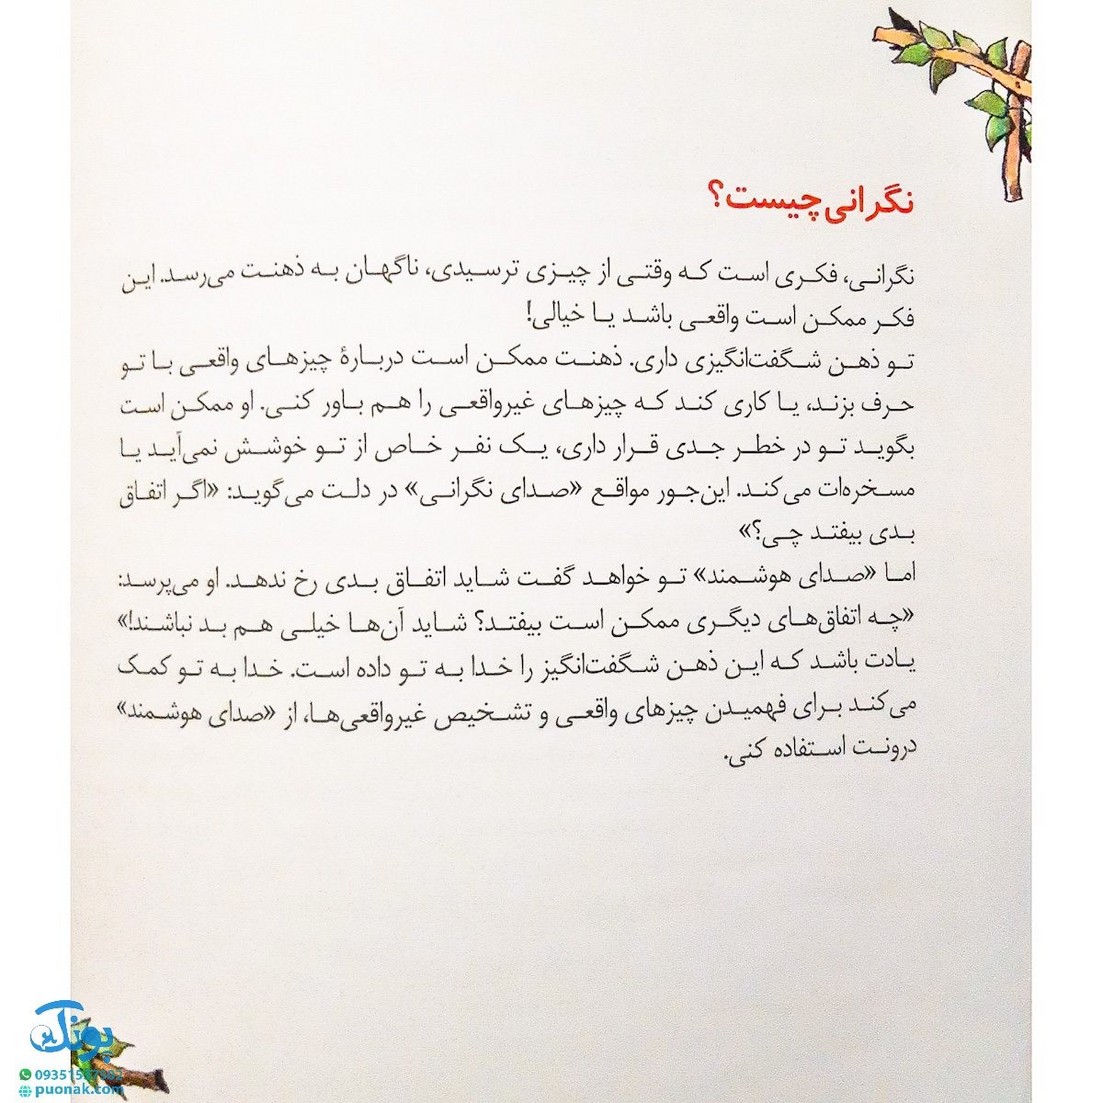 نگرانی چیست؟
نگرانی، فکری است که وقتی از چیزی ترسیدی، ناگهان به ذهنت می‌رسد. این
فکر ممکن است واقعی باشد یا خیالی!
تو ذهن شگفت‌انگیزی داری. ذهنت ممکن است دربارهٔ چیزهای واقعی با تو
حرف بزند، یا کاری کند که چیزهای غیرواقعی را هم باور کنی. او ممکن است
بگوید تو در خطر جدی قرار داری، یک نفر خاص از تو خوشش نمی‌آید یا
مسخره‌ات می‌کند. این‌جور مواقع «صدای نگرانی» در دلت می‌گوید: «اگر اتفاق
بدی بیفتد چی؟»
اما «صدای هوشمند» تو خواهد گفت شاید اتفاق بدی رخ ندهد. او می‌پرسد:
«چه اتفاق‌های دیگری ممکن است بیفتد؟ شاید آن‌ها خیلی هم بد نباشند!»
یادت باشد که این ذهن شگفت‌انگیز را خدا به تو داده است. خدا به تو کمک
می‌کند برای فهمیدن چیزهای واقعی و تشخیص غیرواقعی‌ها، از «صدای هوشمند»
درونت استفاده کنی.
پونک
puonak.com